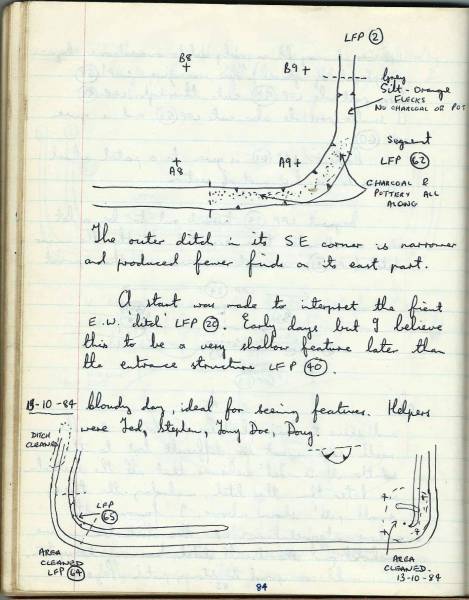 LFP 2
B8
B9
Grey
Silt-Orange
FLECKS
NO CHARCOAL OR POT
Segment
LFP 62
A8
A9
CHARCOAL &
POTTERY ALL
ALONG
The outer ditch in its SE corner is narrower
and produced fewer finds on its east part.
A start was made to interpret the
E.W. 'ditch' LFP 22. Early days but I believe
this to be a very shallow feature later than
the entrance structure LFP 40.
13-10-84 Cloudy day, ideal for seeing features. Helpers
were Ted, Stephen, Tony Doe, Doug.
DITCH
CLEANED
LFP
65
AREA
CLEANED
LFP 64
AREA
CLEANED.
13-10-84
84